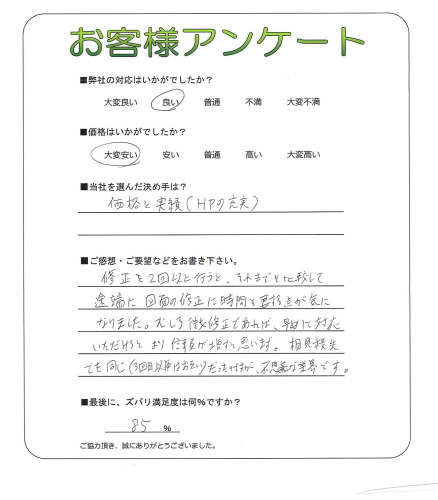 お客様アンケート
■弊社の対応はいかがでしたか？
大変良い 良い 普通 不満 大変不満
■価格はいかがでしたか？
大変安い 安い 普通 高い 大変高い
■当社を選んだ決め手は？
価格と実績（HPの充実）
■ご感想・ご要望などをお書き下さい。
修正を2回以上行うと、それまでと比較して
途端に図面の修正に時間を要する点が気に
なりました。むしろ微修正であれば、早めに対応
いただけると より信頼が増すと思います。相見積先
でも同じ（3回目以降はおそい）だったですが、不思議な業界です。
■最後に、ズバリ満足度は何％ですか？
85 ％
ご協力頂き、誠にありがとうございました。